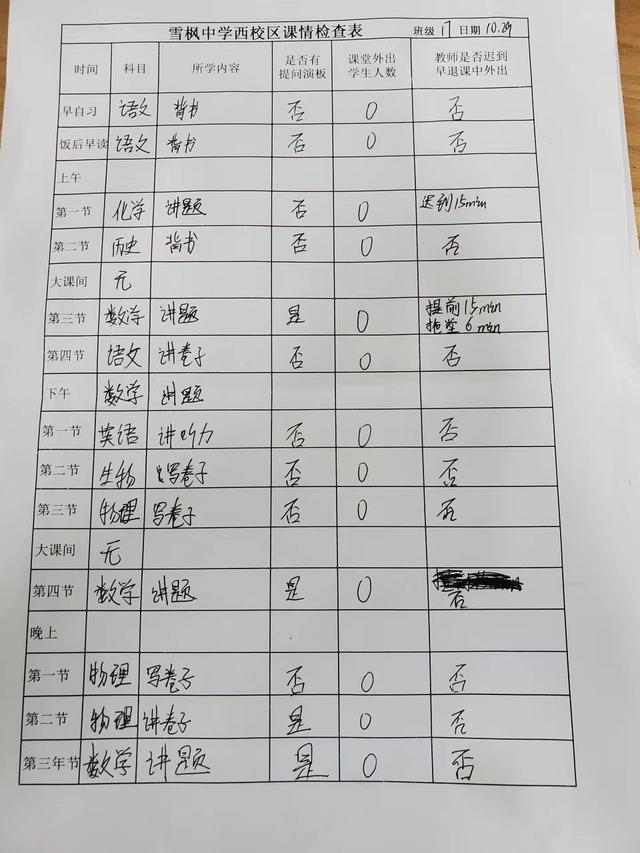 雪枫中学西校区课情检查表 班级 17 日期 10.29
时间 科目 所学内容 是否有提问演板 课堂外出学生人数 教师是否迟到早退课中外出
早自习 语文 背书 否 0 否
饭后早读 语文 背书 否 0 否
上午
第一节 化学 讲题 否 0 迟到15min
第二节 历史 背书 否 0 否
大课间 无
第三节 数学 讲题 是 0 提前15min 拖堂6min
第四节 语文 讲卷子 否 0 否
下午 数学 讲题
第一节 英语 讲听力 否 0 否
第二节 生物 写卷子 否 0 否
第三节 物理 写卷子 否 0 否
大课间 无
第四节 数学 讲题 是 0 否
晚上
第一节 物理 写卷子 否 0 否
第二节 物理 讲卷子 是 0 否
第三年节 数学 讲题 是 0 否